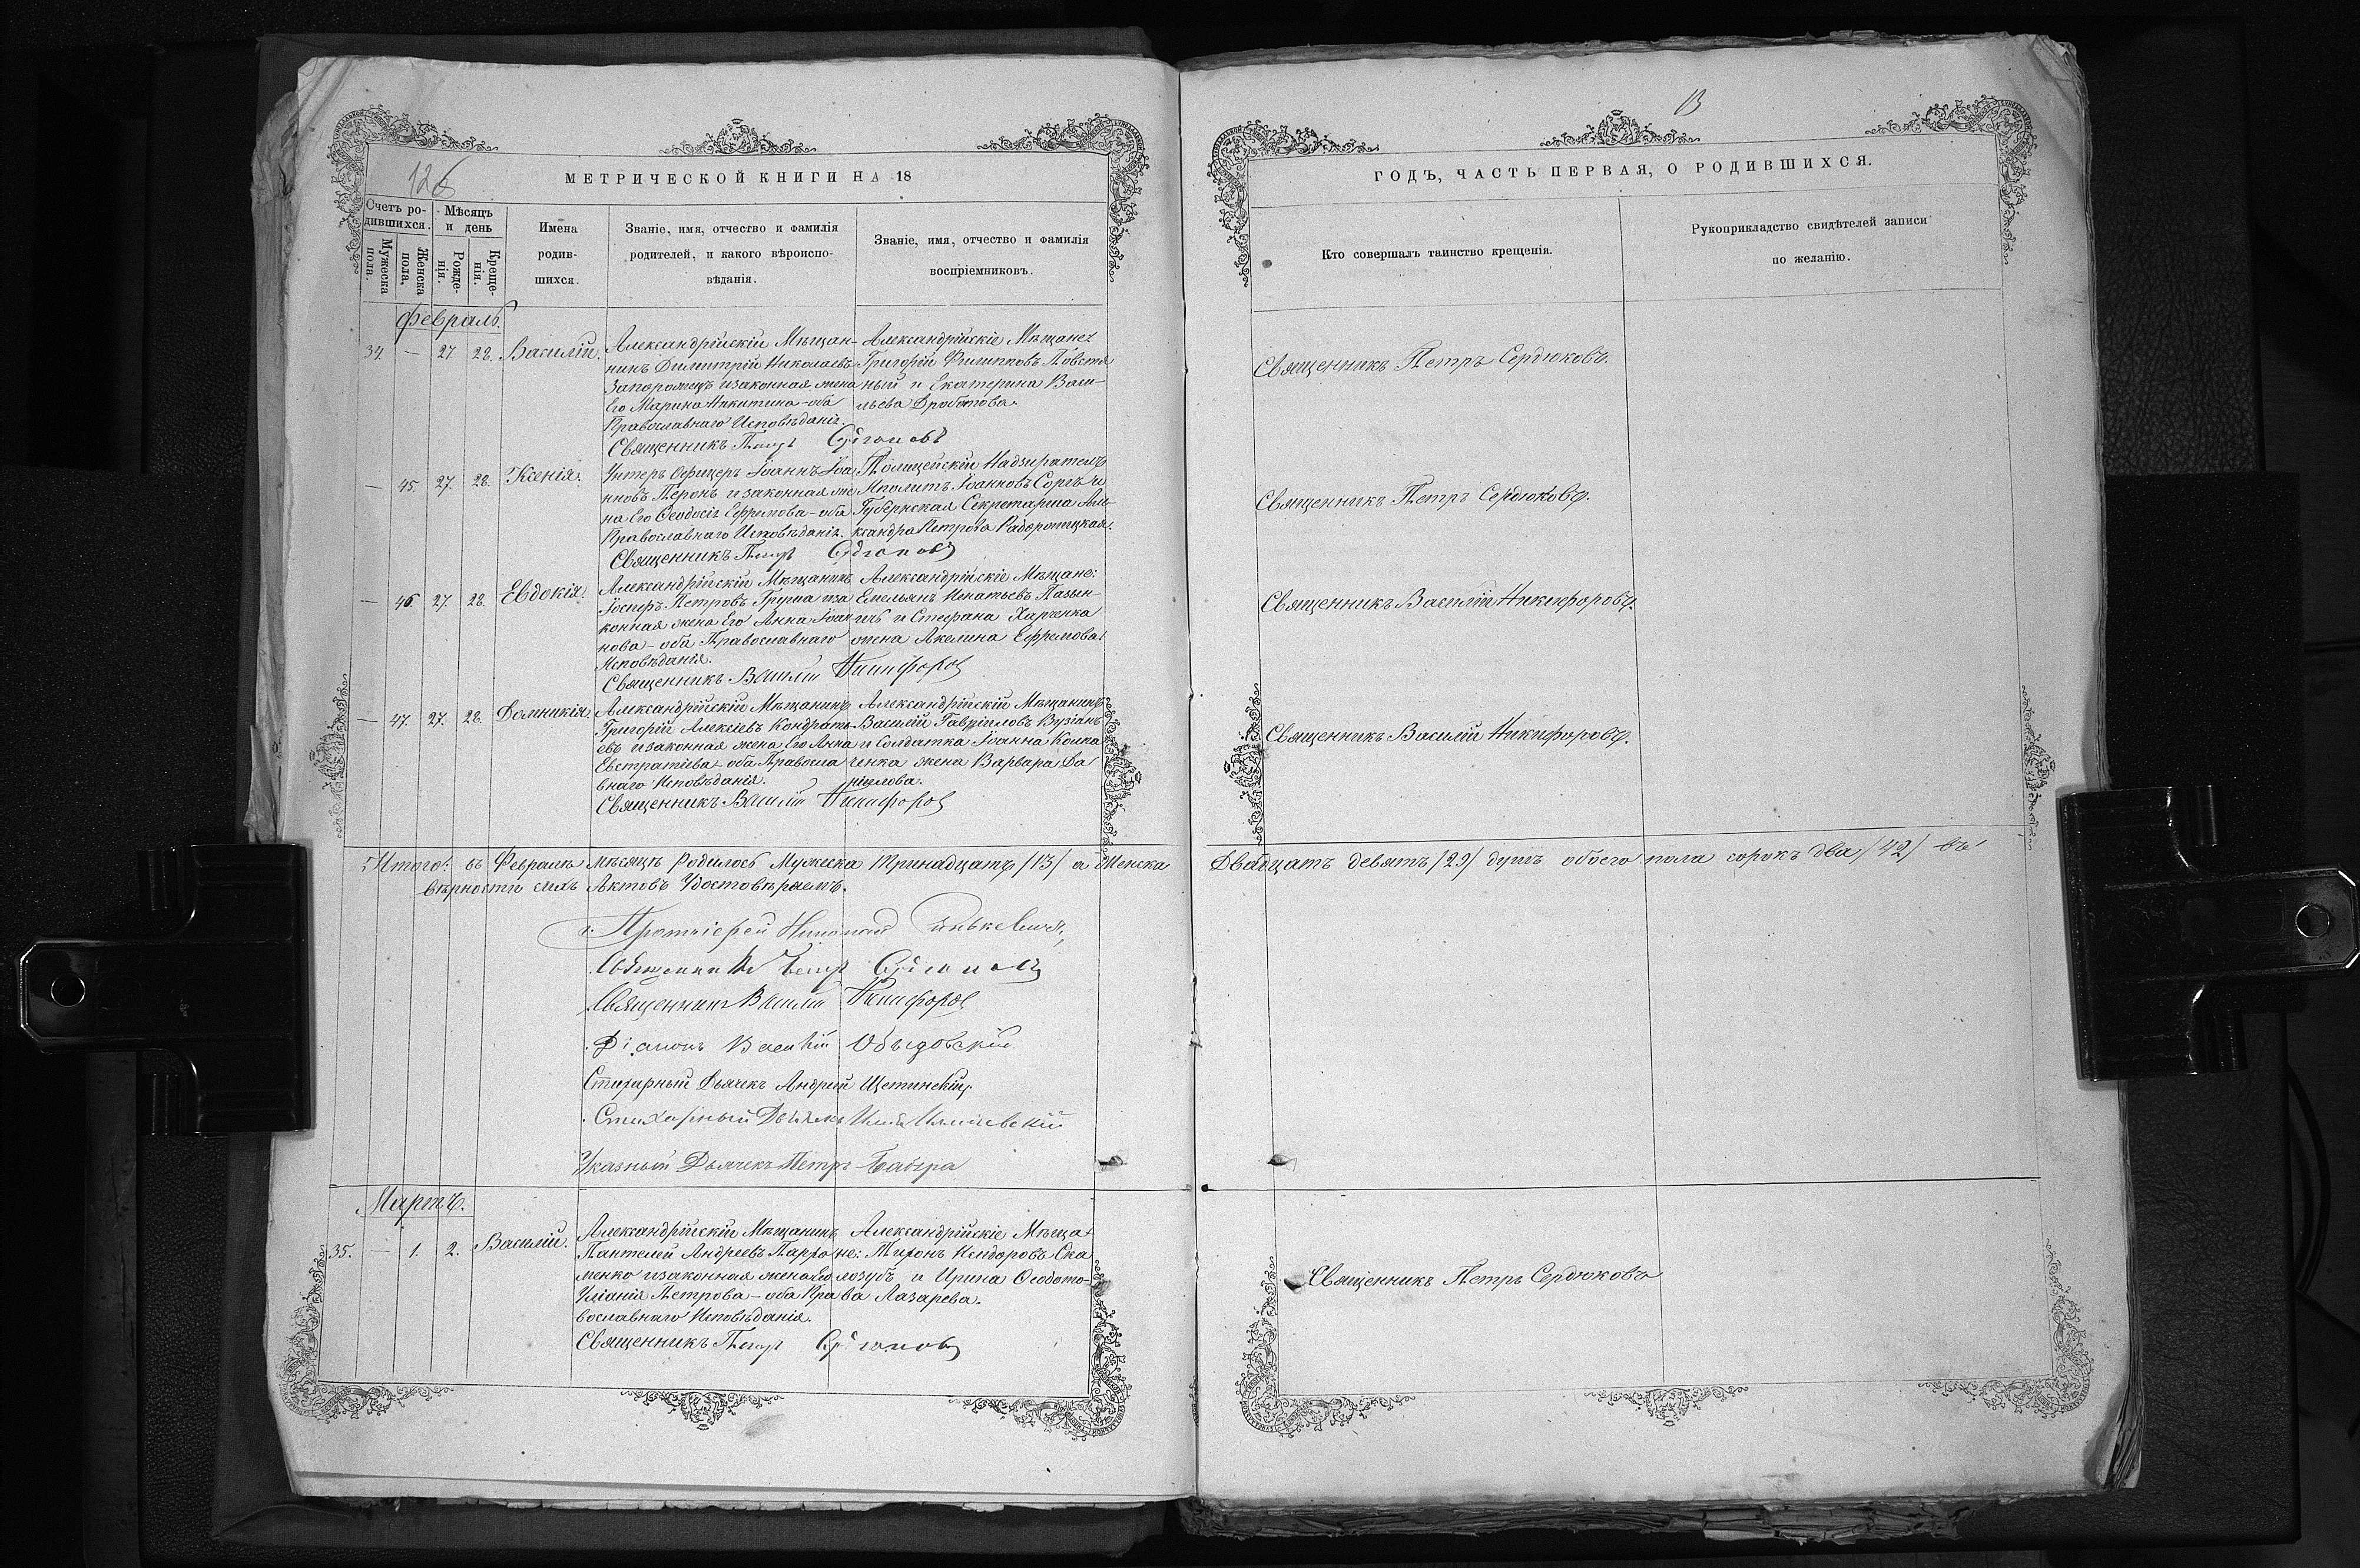 126
МЕТРИЧЕСКОЙ КНИГИ НА 18
Счетъ ро-
дившихся.
Мужеска
пола.
Женска
пола.
Мѣсяцъ
и день
Рожде-
нія.
Креще-
нія.
Имена
родив-
шихся.
Званіе, имя, отчество и фамилія
родителей, и какого вѣроиспо-
вѣданія.
Званіе, имя, отчество и фамилія
воспріемниковъ.
Февраль.
34. — 27 28. Василій.
Александрійскій Мѣщан-
нинъ Димитрій Николаевъ
Запорожецъ и законная жена
Его Марина Никитина - оба
Православнаго Исповѣданія.
Священникъ Петръ Сердюковъ
Александрійскіе Мѣщане:
Григорій Филипповъ Повстя
ный и Екатерина Васи-
льева Дроботова.
— 45. 27. 28. Ксенія.
Унтеръ Офицеръ Іоаннъ Іоа
нновъ Перонъ и законная же
на Его Феодосія Ефримова - оба
Православнаго Исповѣданія.
Священникъ Петръ Сердюковъ
Полицейскій Надзиратель
Иполитъ Іоанновъ Соргъ и
Губернская Секретарша Але-
ксандра Петрова
— 46. 27. 28. Евдокія.
Александрійскій Мѣщанинъ
Іосифъ Петровъ Груша и за
конная жена Его Анна Іоан
нова - оба Православнаго
Исповѣданія.
Священникъ Василій Никифоровъ
Александрійскіе Мѣщане:
Емельянъ Игнатьевъ Пазын-
ичъ и Стефана Харченка
жена Акелина Ефремова.
— 47. 27. 28. Домникія.
Александрійскій Мѣщанинъ
Григорій Алексіевъ Кондрать
евъ и законная жена Его Анна
Евстратіева - оба Правосла
внаго Исповѣданія.
Священникъ Василій Никифоровъ
Александрійскій Мѣщанинъ
Василій Гавріиловъ Вузіанъ
и Солдатка Іоанна Колпа
ченка жена Варвара Да
ніилова.
Итого: въ Февралѣ мѣсяцѣ родилось Мужеска Тринадцать /13/ а Женска
вѣрности сихъ Актовъ Удостовѣряемъ.
Протоіерей Николай
Священникъ Петръ Сердюковъ
Священникъ Василій Никифоровъ
Діаконъ Василій Обыдовскій
Стихарный Дьячекъ Андрей Щетинскій.
Стихарный Дьячекъ Илія
Указный Дьячекъ Петръ Бабура
Мартъ.
35. — 1. 2. Василій.
Александрійскій Мѣщанинъ
Пантелей Андреевъ Пархо
менко и законная жена Его
Уліанія Петрова - оба Пра
вославнаго Исповѣданія.
Священникъ Петръ Сердюковъ
Александрійскіе Мѣща-
не: Тихонъ Исидоровъ Ска
лозубъ и Ирина Феодото-
ва Лазарева.
13
ГОДЪ, ЧАСТЬ ПЕРВАЯ, О РОДИВШИХСЯ.
Кто совершалъ таинство крещенія.
Рукоприкладство свидѣтелей записи
по желанію.
Священникъ Петръ Сердюковъ.
Священникъ Петръ Сердюковъ.
Священникъ Василій Никифоровъ.
Священникъ Василій Никифоровъ.
Двадцать девять /29/ душъ обоего пола сорокъ два /42/ въ
Священникъ Петръ Сердюковъ